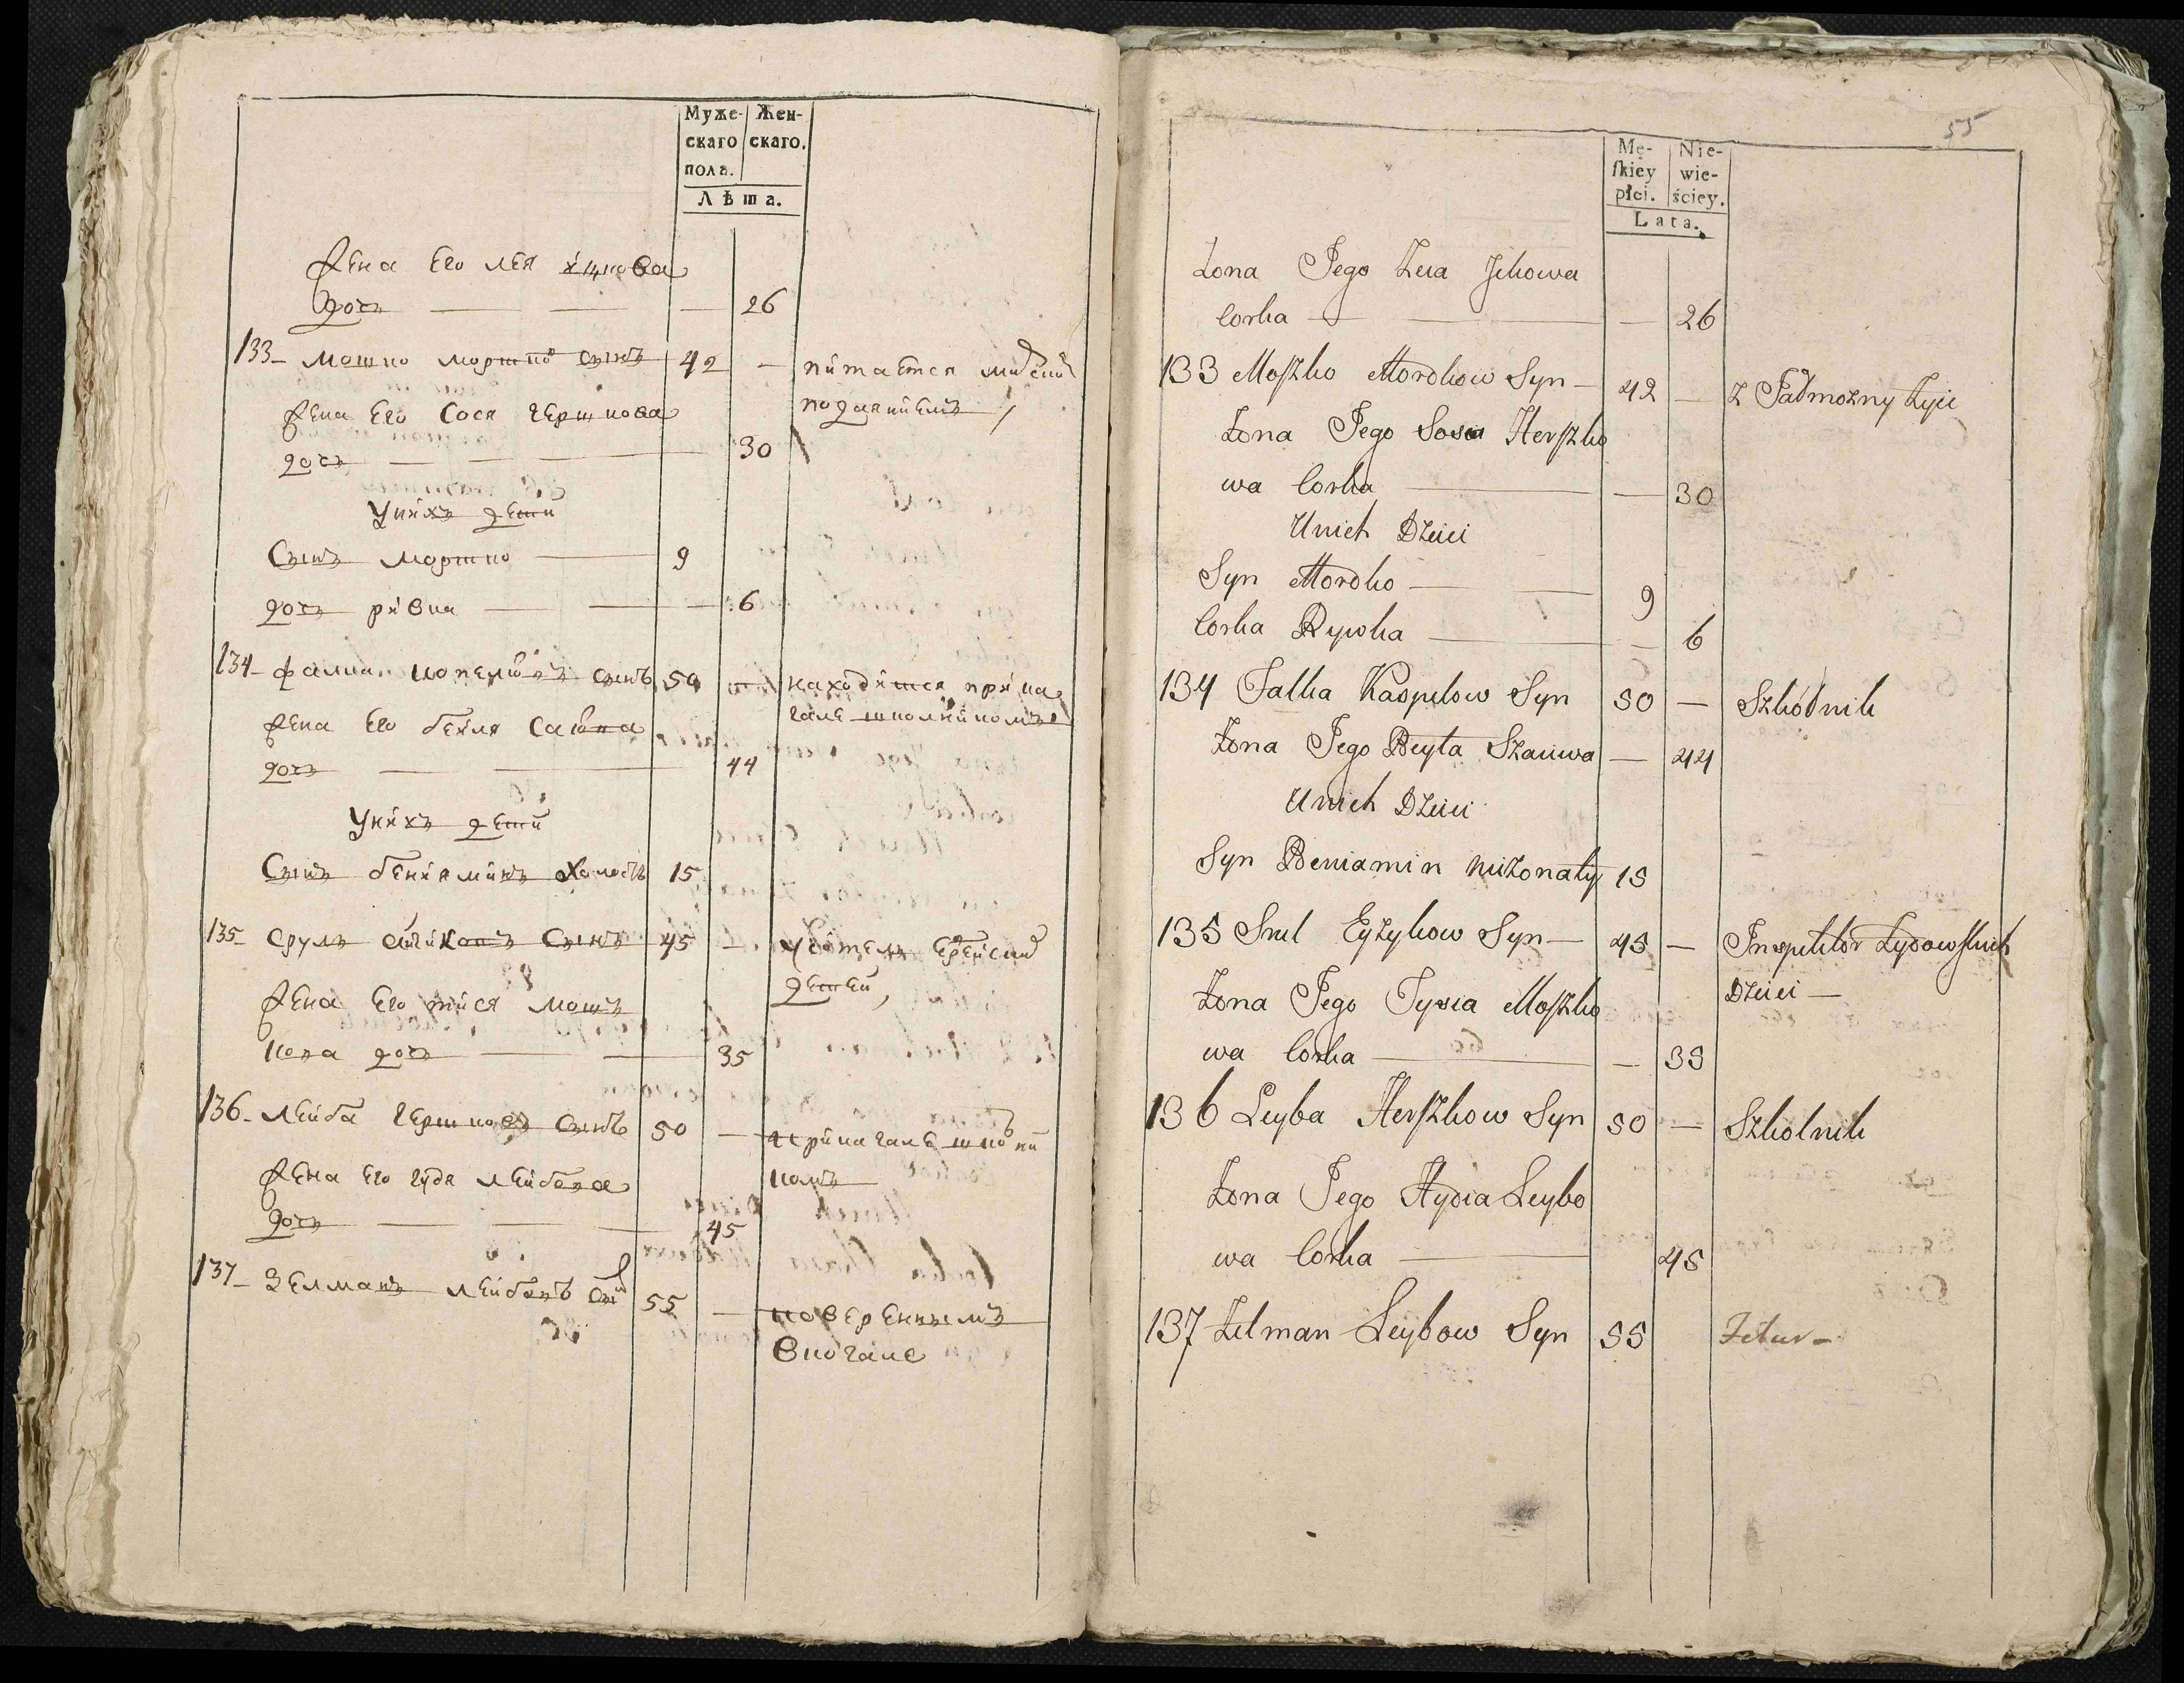 Муже-
скаго
пола.
Жен-
скаго.
Лѣта.
Жена его лея ицкова
дочъ — — — 26
133 – Мошко моршко сынъ 42 — питаетса
подаяниемъ
Жена его Сося гершкова
дочъ — — 30
Унихъ дети
Сынъ моршко — 9
дочъ ривка — — — 6
134 – фалка сынъ 50 — находитса при ка
гале школникомъ
Жена его бейла
дочъ — — 44
Унихъ дети
Сынъ бениаминъ холостъ 15
135 – срулъ сынъ 45 — учителъ
детей,
Жена его тися мошъ
кова дочъ — — 35
136 – лейба гершковъ сынъ 50 — при кагале
комъ
Жена его гудя лейбова
дочъ — — — 45
137 – Зелманъ лейбовъ 55 — повереннымъ
вкогале
55
Mę-
skiey
płci.
Nie-
wie-
ściey.
Lata.
Żona Jego Leia Jckowa
Corka — — — 26
133 Moszko Mordkow Syn — 42 — Z Jadmożny Żyie
Żona Jego Sosia Herszko
wa Corka — — 30
Unich Dzieci
Syn Mordko — — 9
Corka Rywka — — 6
134 Falka Kaspelow Syn 50 — Szkólnik
Żona Jego Beyla — 44
Unich Dzieci
Syn Beniamin nieżonaty 15
135 Srul Eyzykow Syn — 45 — Inspektor Żydowskich
Dzieci —
Żona Jego Tysia Moszko
wa Corka — — 35
136 Leyba Herszkow Syn 50 — Szkolnik
Żona Jego Hydia Leybo
wa Corka — 45
137 Zelman Leybow Syn 55